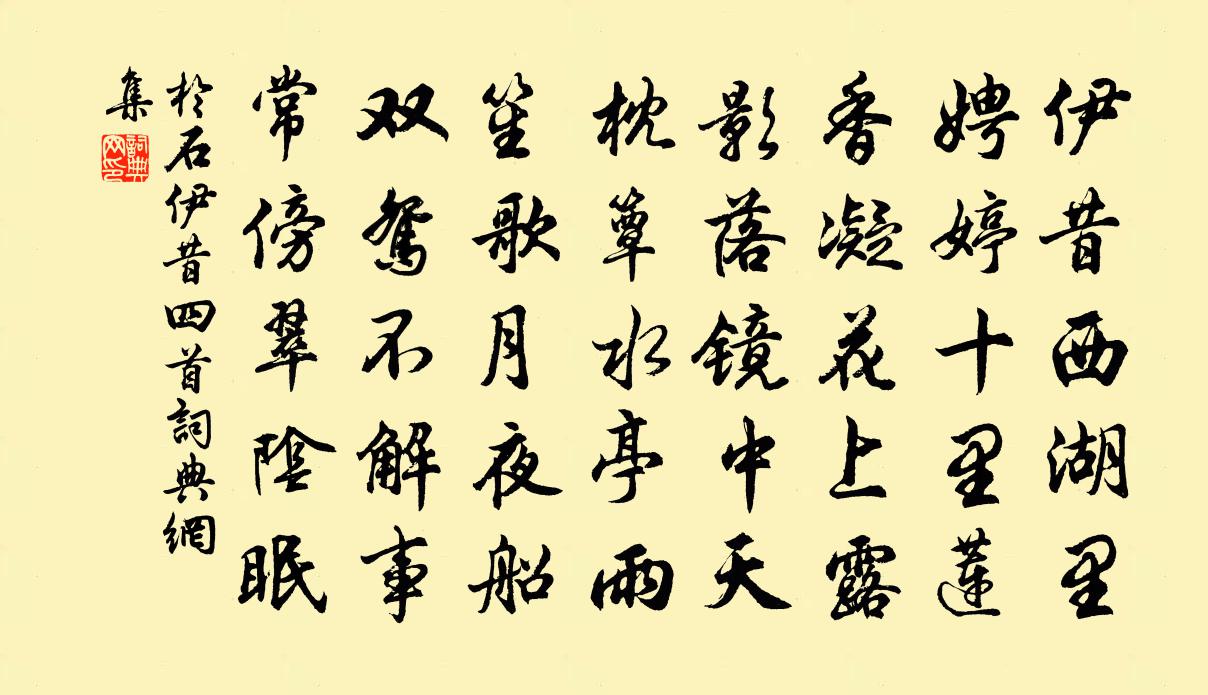 伊昔西湖里
娉婷十里蓮
香凝花上露
影落镜中天
枕簟水亭雨
笙歌月夜船
双鸳不解事
常傍翠陰眠
於石伊昔四首詞典網
集
詞典
网印